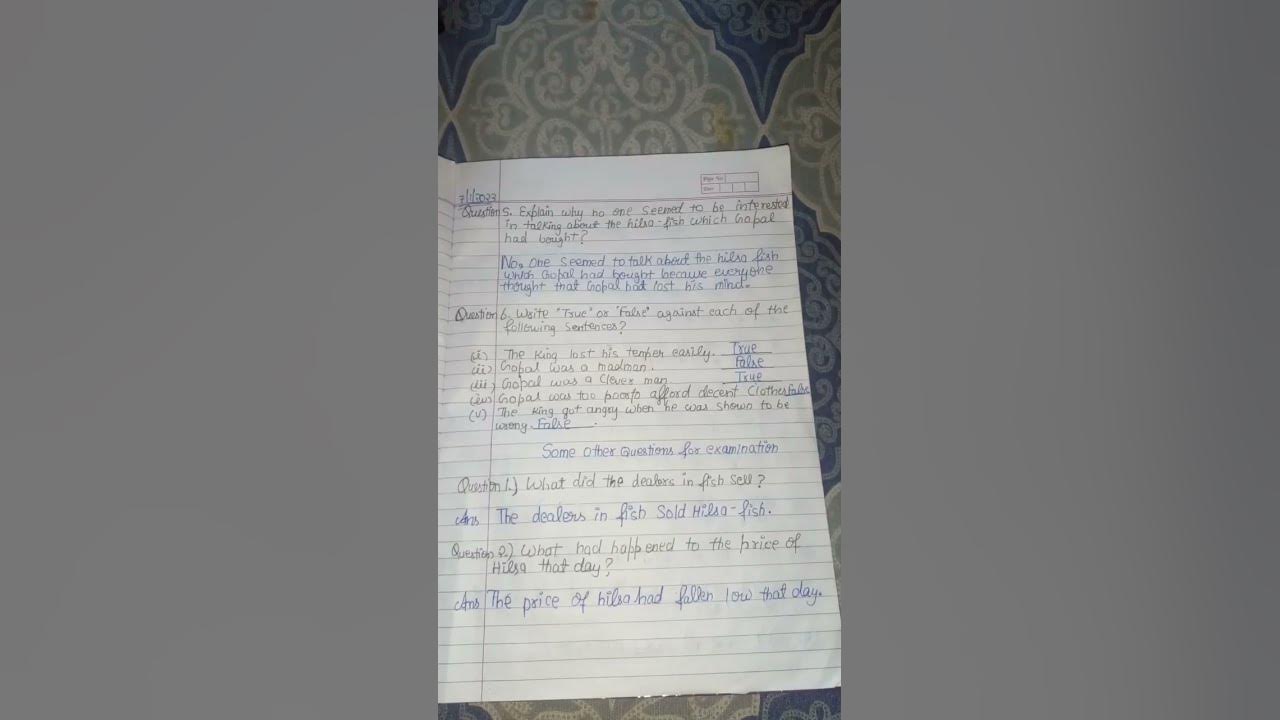 7/1/2023
Question 5. Explain why no one seemed to be interested
in talking about the hilsa-fish which Gopal
had bought?
No, one seemed to talk about the hilsa fish
which Gopal had bought because everyone
thought that Gopal had lost his mind.
Question 6. Write "True" or "False" against each of the
following sentences?
(i) The King lost his temper easily. True
(ii) Gopal was a madman. False
(iii) Gopal was a Clever man True
(iv) Gopal was too poor to afford decent Clothes False
(v) The King got angry when he was shown to be
wrong. False.
Some Other Questions for examination
Question 1.) What did the dealers in fish sell?
Ans The dealers in fish Sold Hilsa-fish.
Question 2.) What had happened to the price of
Hilsa that day?
Ans The price of hilsa had fallen low that day.